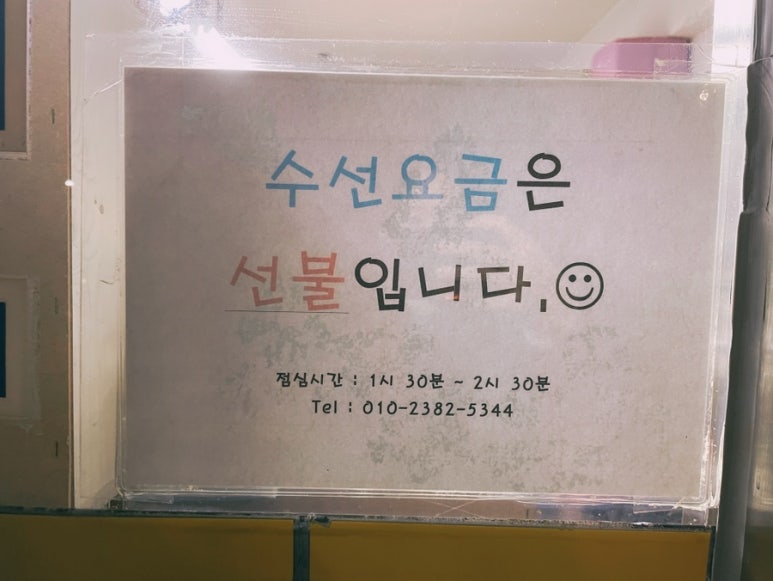 수선요금은
선불입니다.☺
점심시간 : 1시 30분 ~ 2시 30분
Tel : 010-2382-5344